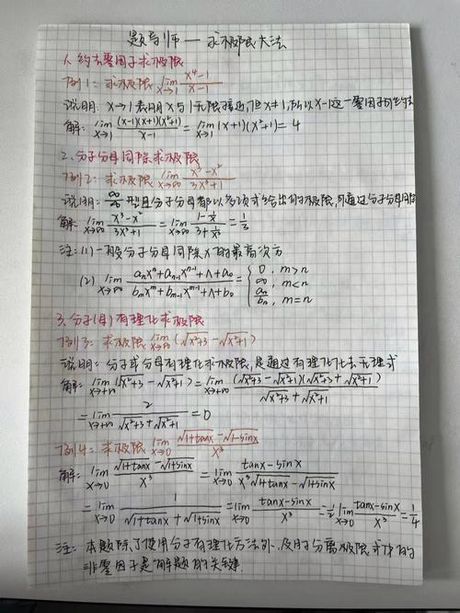 题导师——求极限大法
1. 约去零因子求极限
例1: 求极限 lim x→1 (x⁴-1)/(x-1)
说明: x→1 表明 x 与 1 无限接近, 但 x≠1, 所以 x-1 这一零因子可以约去
解: lim x→1 (x-1)(x+1)(x²+1)/(x-1) = lim x→1 (x+1)(x²+1) = 4
2. 分子分母同除求极限
例2: 求极限 lim x→∞ (x³-x²)/(3x³+1)
说明: ∞/∞ 型且分子分母都以多项式给出的极限, 可通过分子分母同除
解: lim x→∞ (x³-x²)/(3x³+1) = lim x→∞ (1-1/x)/(3+1/x³) = 1/3
注: (1) 一般分子分母同除 x 的最高次方
(2) lim x→∞ (aₙxⁿ+aₙ₋₁xⁿ⁻¹+Λ+a₀)/(bₘxᵐ+bₘ₋₁xᵐ⁻¹+Λ+b₀) = { 0, m>n
∞, m<n
aₙ/bₙ, m=n
3. 分子(母)有理化求极限
例3: 求极限 lim x→+∞ (√(x²+3) - √(x²+1))
说明: 分子或分母有理化求极限, 是通过有理化化去无理式
解: lim x→+∞ (√(x²+3) - √(x²+1)) = lim x→+∞ (√(x²+3) - √(x²+1))(√(x²+3) + √(x²+1))/(√(x²+3) + √(x²+1))
= lim x→+∞ 2/(√(x²+3) + √(x²+1)) = 0
例4: 求极限 lim x→0 (√(1+tanx) - √(1-sinx))/x³
解: lim x→0 (√(1+tanx) - √(1+sinx))/x³ = lim x→0 (tanx-sinx)/(x³√(1+tanx) - √(1+sinx))
= lim x→0 1/(√(1+tanx) + √(1+sinx)) = lim x→0 (tanx-sinx)/x³ = ½ lim x→0 (tanx-sinx)/x³ = 1/4
注: 本题除了使用分子有理化方法外, 及时分离极限式中的
非零因子是解题的关键